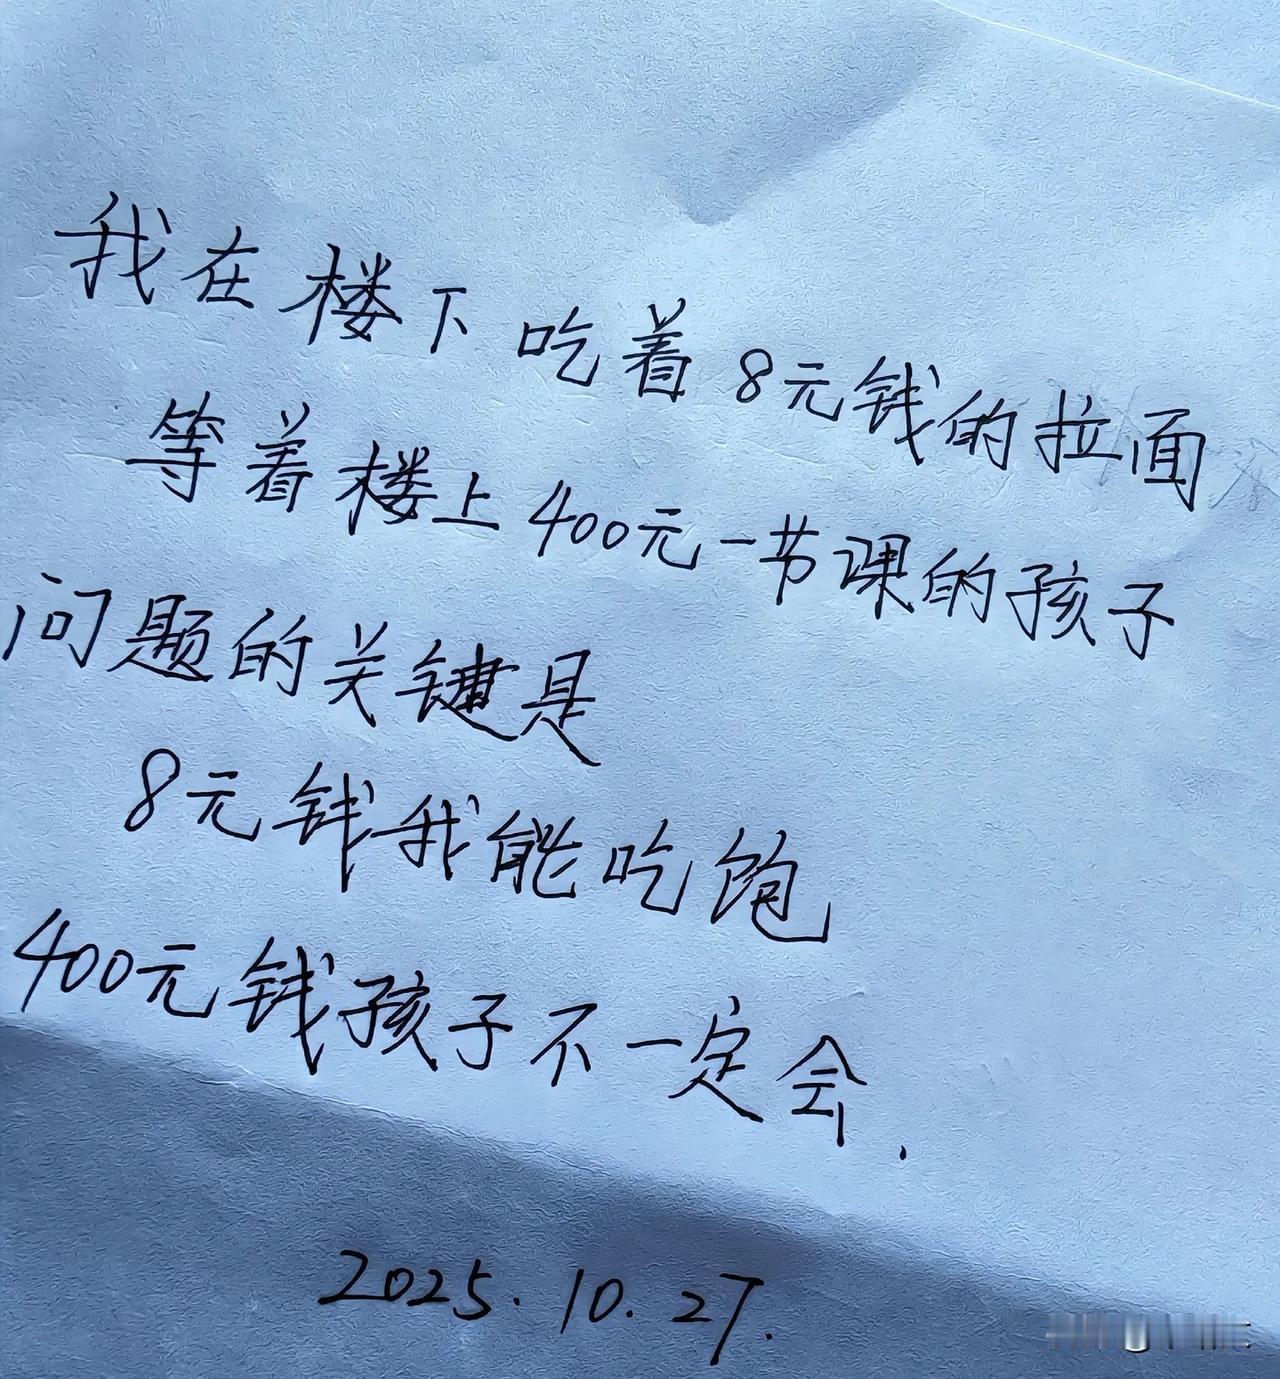 我在楼下吃着8元钱的拉面
等着楼上400元一节课的孩子
问题的关键是
8元钱我能吃饱
400元钱孩子不一定会.
2025.10.27.